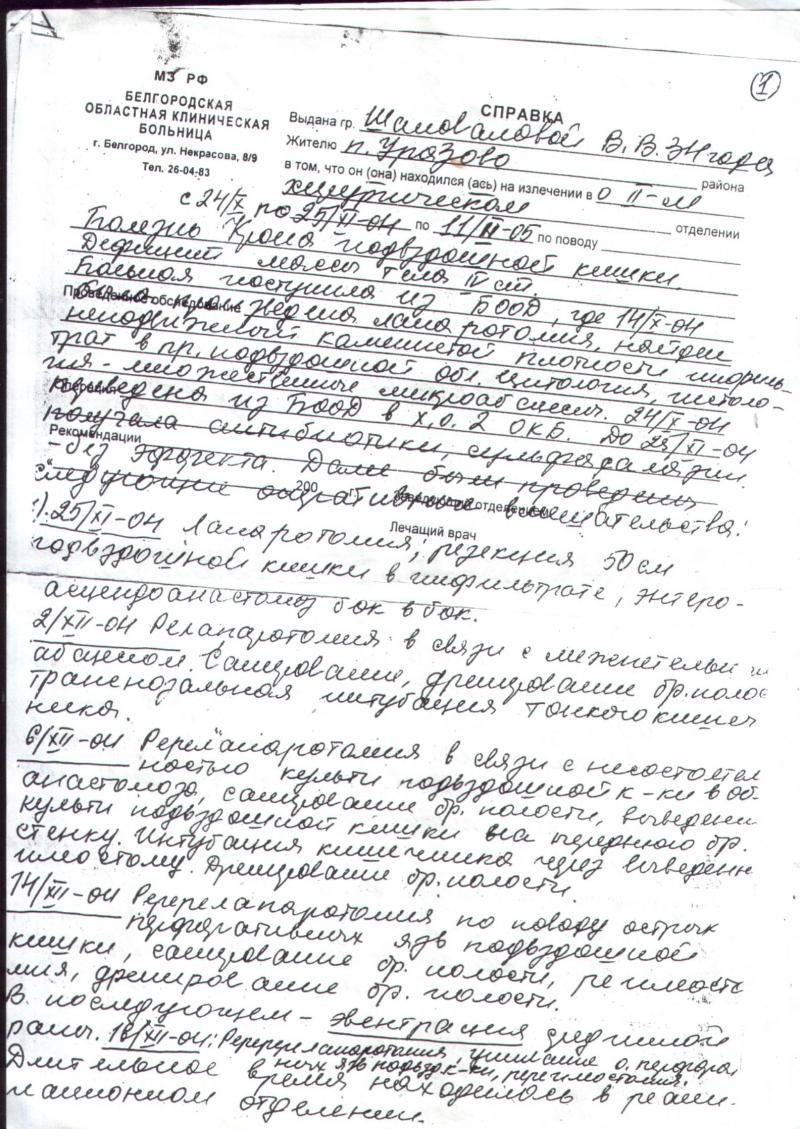 1
МЗ РФ
БЕЛГОРОДСКАЯ
ОБЛАСТНАЯ КЛИНИЧЕСКАЯ
БОЛЬНИЦА
г. Белгород, ул. Некрасова, 8/9
Тел. 26-04-83
СПРАВКА
Выдана гр. Шаповаловой В. В. 34 года
Жителю п. Уразово района
в том, что он (она) находился (ась) на излечении в о II-м
хирургическом отделении
с 24/X по 25/XI-04 по 11/II-05 по поводу
Болезнь Крона подвздошной кишки.
Дефицит массы тела IV ст.
Больная поступила из БООД, где 14/X-04
Проведенное обследование
была произведена лапаротомия, найден
неподвижный каменистой плотности инфиль-
трат в пр. подвздошной обл. Цитология, гистоло-
гия - множественные микроабсцессы. 24/X-04
Операция
переведена из БООД в х.о. 2 ОКБ. До 25/XI-04
получала антибиотики, сульфасалазин
Рекомендации
- без эффекта. Далее были проведены
200 г. Заведующий отделением
следующие оперативные вмешательства:
Лечащий врач
1). 25/XI-04 Лапаротомия, резекция 50 см
подвздошной кишки в инфильтрате, энтеро-
асцендоанастомоз бок в бок.
2/XII-04 Релапаротомия в связи с межпетельным
абсцессом. Санирование, дренирование бр. полос
трансназальная интубация тонкого кишеч
ника.
6/XII-04 Ререлапаротомия в связи с несостоятел
ностью культи подвздошной к-ки в об.
анастомоза, санирование бр. полости, выведени
культи подвздошной кишки на переднюю бр.
стенку. Интубация кишечника через выведенн
илеостому. Дренирование бр. полости.
14/XII-04 Реререлапаротомия по поводу острых
перфоративных язв подвздошной
кишки, санирование бр. полости, реилеосто
мия, дренирование бр. полости.
В последующем - эвентрация срединной
раны. 16/XII-04: Реререлапаротомия, ушивание о. перфора
ных язв подвзд. к-ки, реилеостомия.
Длительное время находилась в реани-
мационном отделении.